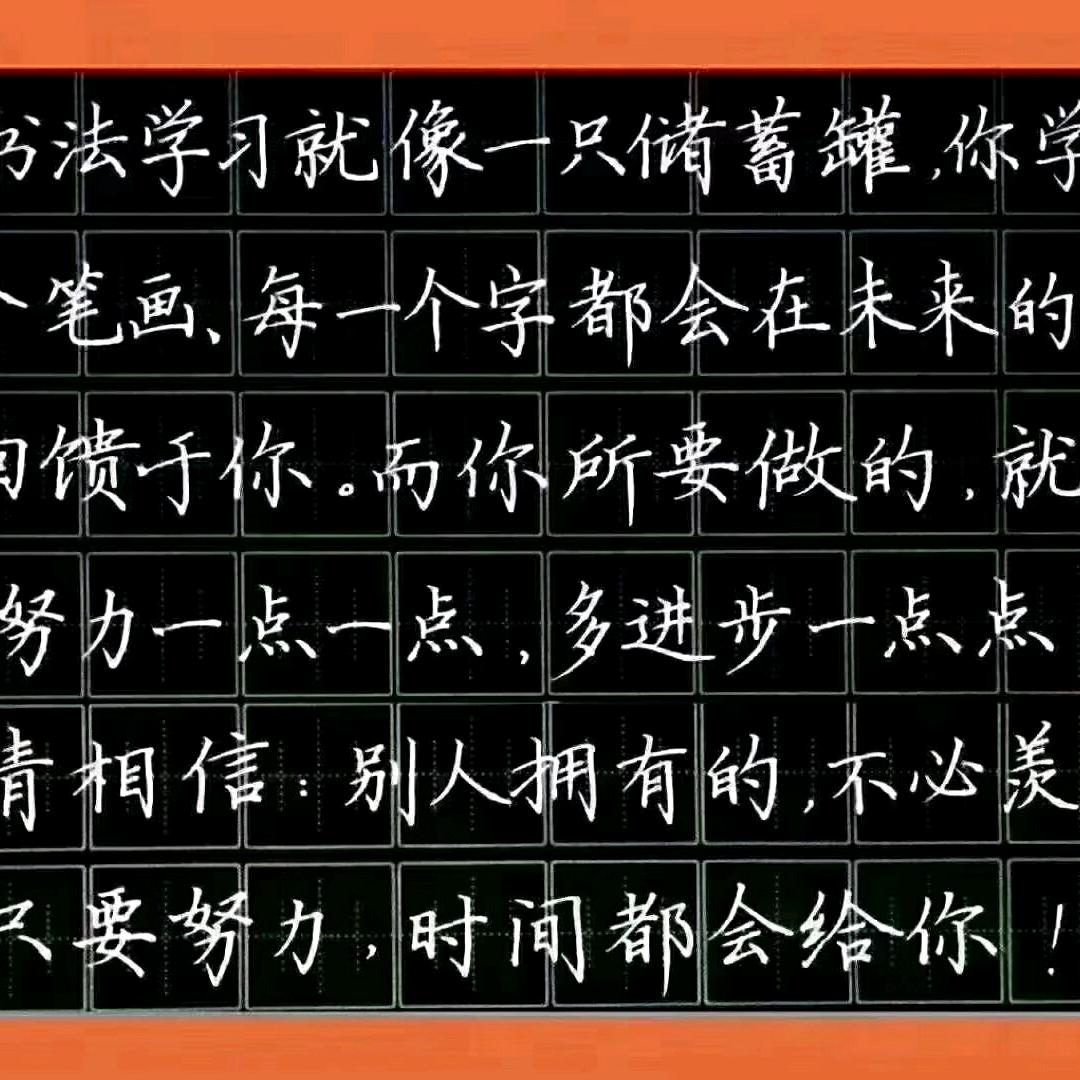 书法学习就像一只储蓄罐,你学
个笔画、每一个字都会在未来的
回馈于你。而你所要做的,就
努力一点一点,多进步一点点
请相信:别人拥有的,不必羡
只要努力,时间都会给你!